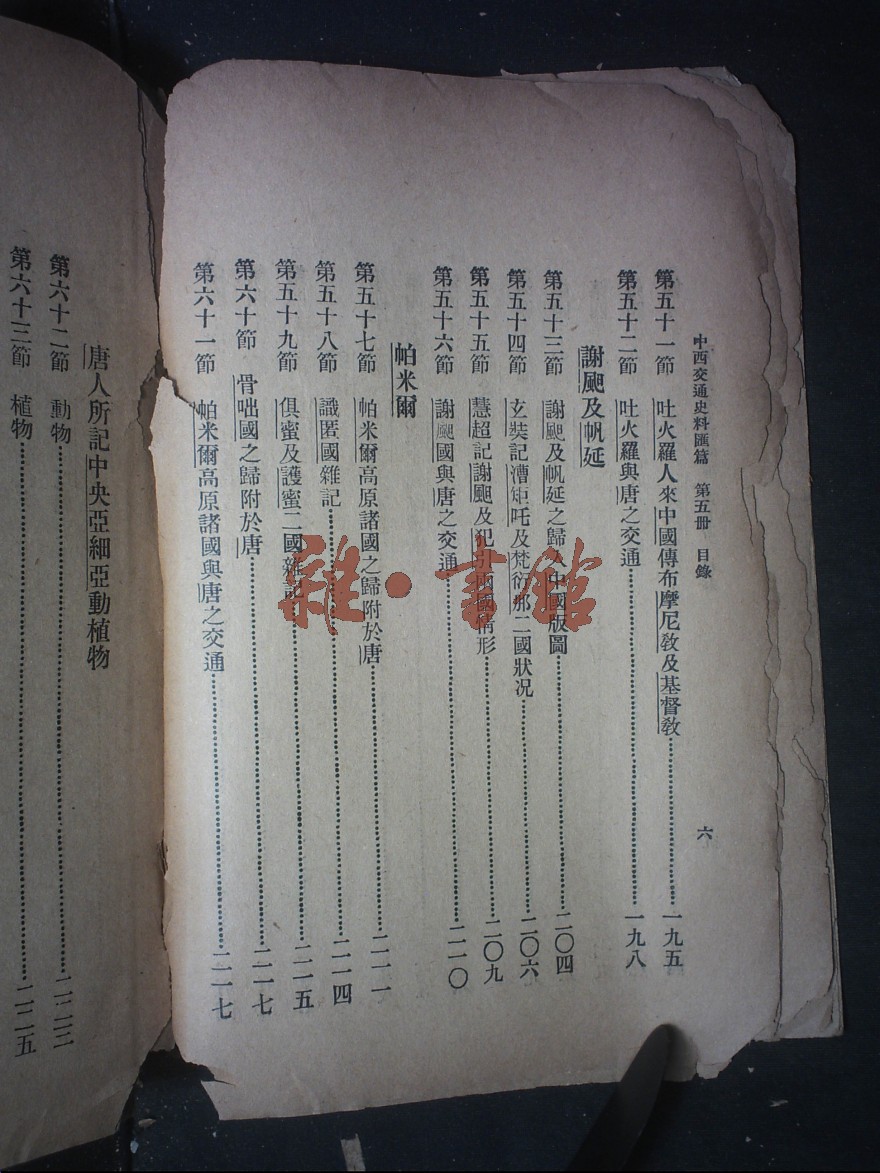 中西交通史料匯篇　第五冊　目錄
六
第五十一節　吐火羅人來中國傳布摩尼教及基督教……一九五
第五十二節　吐火羅與唐之交通……一九八
謝䫻及帆延
第五十三節　謝䫻及帆延之歸入中國版圖……二〇四
第五十四節　玄奘記漕矩吒及梵衍那二國狀況……二〇六
第五十五節　慧超記謝䫻及犯引兩國情形……二〇九
第五十六節　謝䫻國與唐之交通……二一〇
帕米爾
第五十七節　帕米爾高原諸國之歸附於唐……二一一
第五十八節　識匿國雜記……二一四
第五十九節　俱蜜及護蜜二國雜記……二一五
第六十節　骨咄國之歸附於唐……二一七
第六十一節　帕米爾高原諸國與唐之交通……二一七
唐人所記中央亞細亞動植物
第六十二節　動物……二二二
第六十三節　植物……二二五
雜·書館